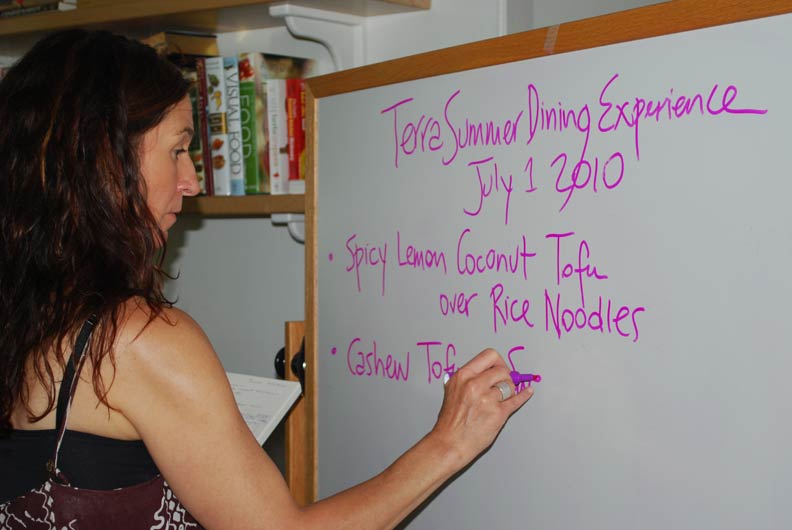 Terra Summer Dining Experience
July 1 2010
• Spicy Lemon Coconut Tofu
over Rice Noodles
• Cashew Tofu S
VISUAL FOOD
FOOD